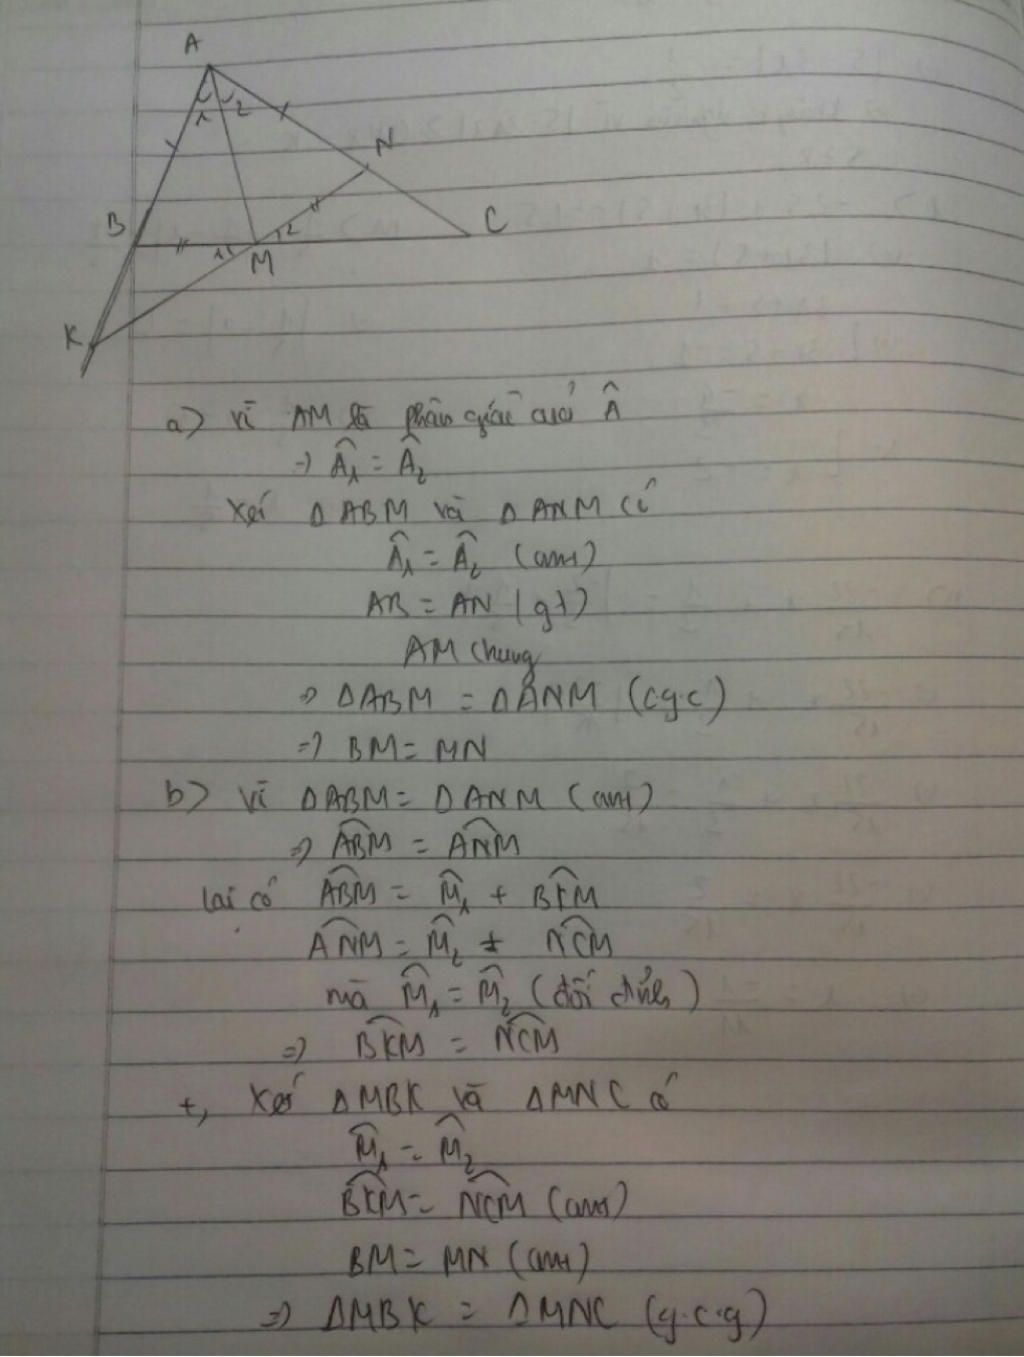 A
1 2
N
B
C
1 2
M
K
a) Vì AM là phân giác của Â
=> Â₁ = Â₂
Xét ΔABM và ΔANM có
Â₁ = Â₂ (cmt)
AB = AN (gt)
AM chung
=> ΔABM = ΔANM (cg.c)
=> BM = MN
b) Vì ΔABM = ΔANM (cmt)
=> \widehat{ABM} = \widehat{ANM}
lại có \widehat{ABM} = \widehat{M}₁ + \widehat{BKM}
\widehat{ANM} = \widehat{M}₂ + \widehat{NCM}
mà \widehat{M}₁ = \widehat{M}₂ (đối đỉnh)
=> \widehat{BKM} = \widehat{NCM}
+, Xét ΔMBK và ΔMNC có
\widehat{M}₁ = \widehat{M}₂
\widehat{BKM} = \widehat{NCM} (cmt)
BM = MN (cmt)
=> ΔMBK = ΔMNC (g.c.g)